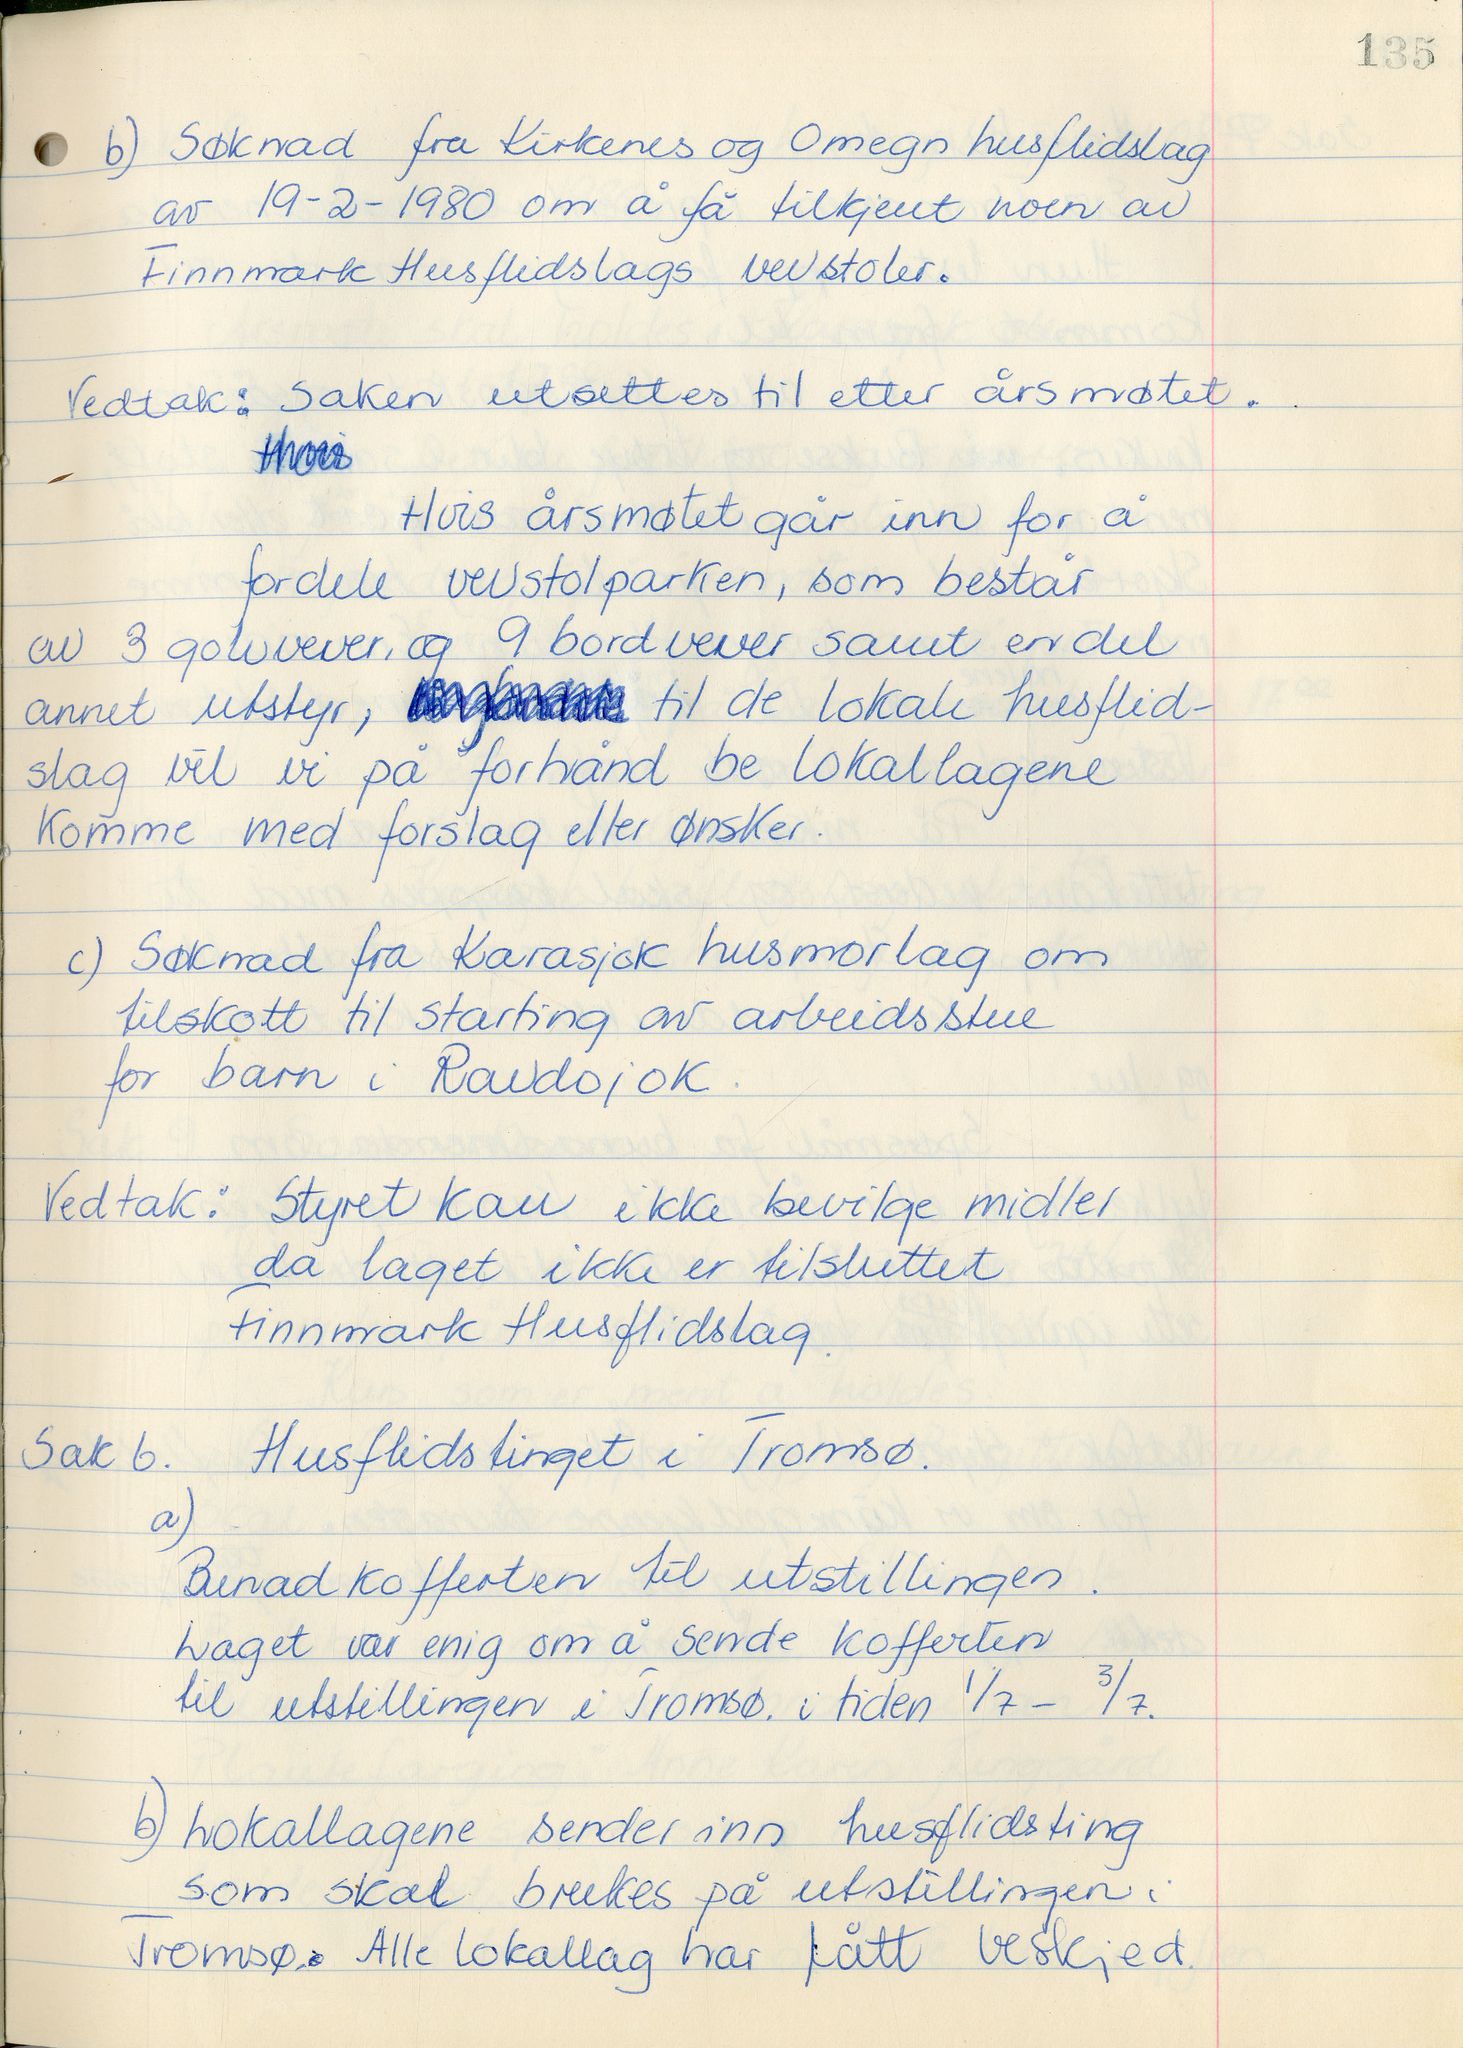 135
b) Søknad fra Kirkenes og Omegn husflidslag
av 19-2-1980 om å få tilkjent noen av
Finnmark Husflidslags vevstoler.
Vedtak: Saken utsettes til etter årsmøtet.
Hvis
Hvis årsmøtet går inn for å
fordele vevstolparken, som består
av 3 golvvever, og 9 bordvever samt en del
annet utstyr, til de lokale husflid-
slag vil vi på forhånd be lokallagene
komme med forslag eller ønsker.
c) Søknad fra Karasjok husmorlag om
tilskott til starting av arbeidsstue
for barn i Ravdojok.
Vedtak: Styret kan ikke bevilge midler
da laget ikke er tilsluttet
Finnmark Husflidslag.
Sak 6. Husflidstinget i Tromsø.
a)
Bunadkofferten til utstillingen.
Laget var enig om å sende kofferten
til utstillingen i Tromsø. i tiden 1/7 - 3/7.
b) Lokallagene sender inn husflidsting
som skal brukes på utstillingen i
Tromsø. Alle lokallag har fått beskjed.